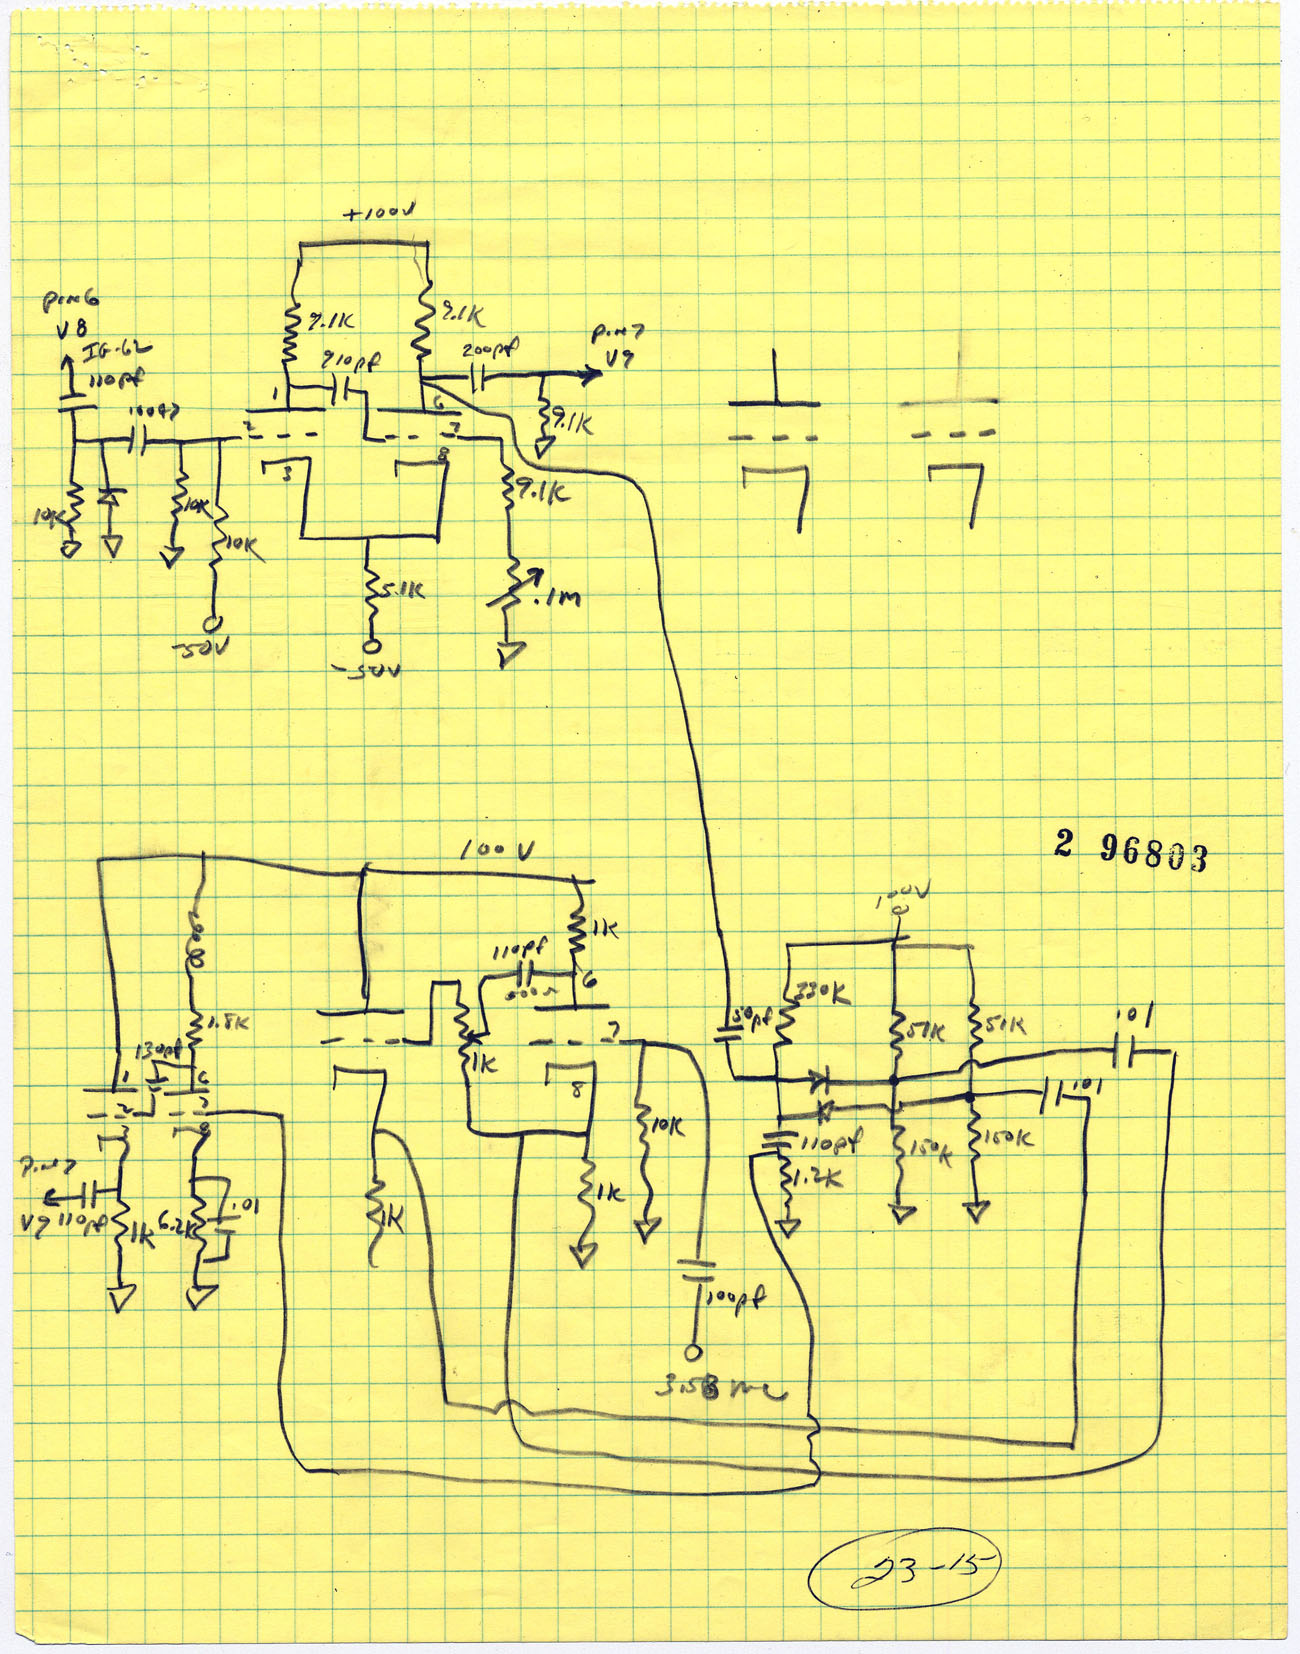 +100V
PIN6
V8
IG-62
110pf
9.1K
9.1K
910pf
200pf
PIN7
V9
1
6
2
7
3
8
9.1K
9.1K
10K
10K
10K
5.1K
.1M
-50V
-50V
2 96803
100V
100V
1K
110pf
6
500~
330K
51K
51K
.01
50pf
1.8K
130pf
1
6
7
1K
.01
2
7
8
8
10K
110pf
150K
150K
1.2K
PIN7
V9
110pf
1K
6.2K
.01
1K
1K
100pf
3.58 mc
23-15